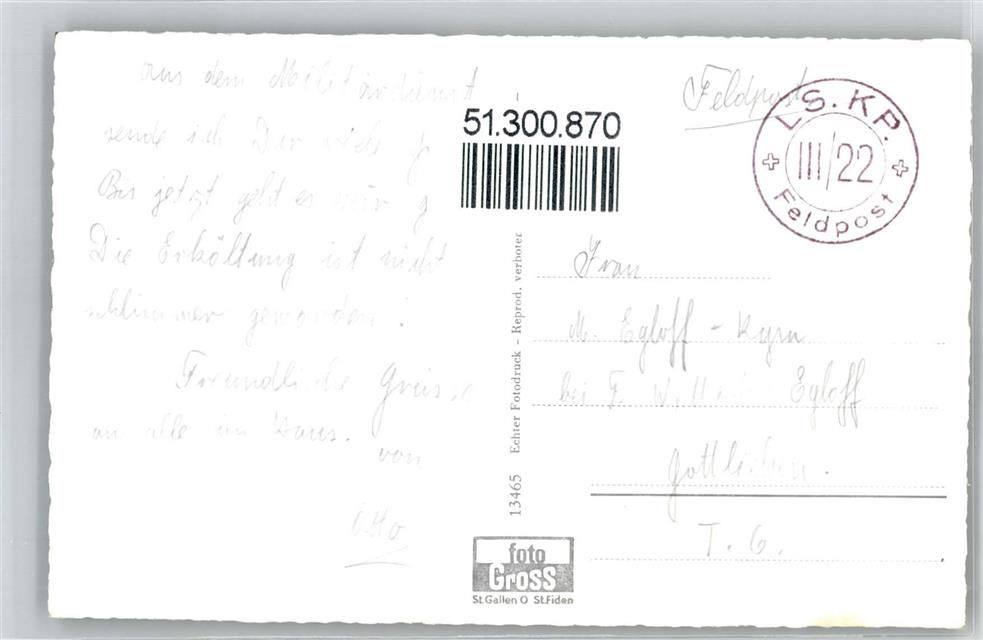 aus dem Militärdienst
sende ich Dir viele
Bis jetzt geht es mir g
Die Erkältung ist nicht
schlimmer geworden!
Freundliche Grüsse
an alle im Haus.
von
Otto
51.300.870
Feldpost
L S. K P.
III/22
Feldpost
Frau
M. Egloff - Kym
bei F. Egloff
Gottlieben.
T. G.
13465 Echter Fotodruck - Reprod. verboten
foto
Gross
St.Gallen O St.Fiden